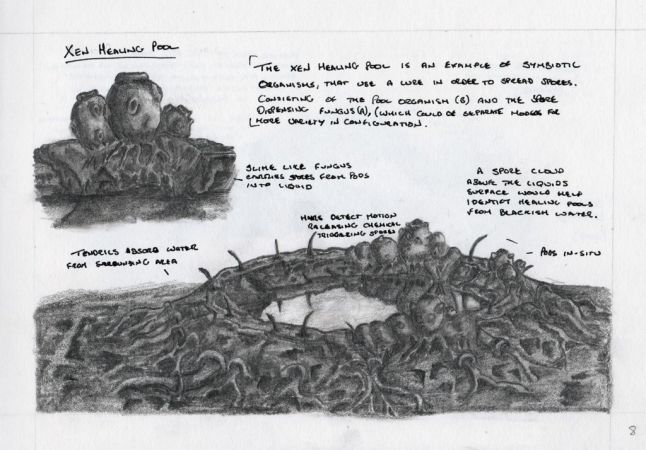 XEN HEALING POOL
THE XEN HEALING POOL IS AN EXAMPLE OF SYMBIOTIC
ORGANISMS, THAT USE A LURE IN ORDER TO SPREAD SPORES.
CONSISTING OF THE POOL ORGANISM (B) AND THE SPORE
DISPENSING FUNGUS (A), (WHICH COULD BE SEPARATE MODELS FOR
MORE VARIETY IN CONFIGURATION.
SLIME LIKE FUNGUS
CARRIES SPORES FROM PODS
INTO LIQUID
A SPORE CLOUD
ABOVE THE LIQUIDS
SURFACE WOULD HELP
IDENTIFY HEALING POOLS
FROM BLACKISH WATER.
HAIRS DETECT MOTION
RELEASING CHEMICAL
TRIGGERING SPORES
TENDRILS ABSORB WATER
FROM SAROUNDING AREA
PODS IN-SITU
8